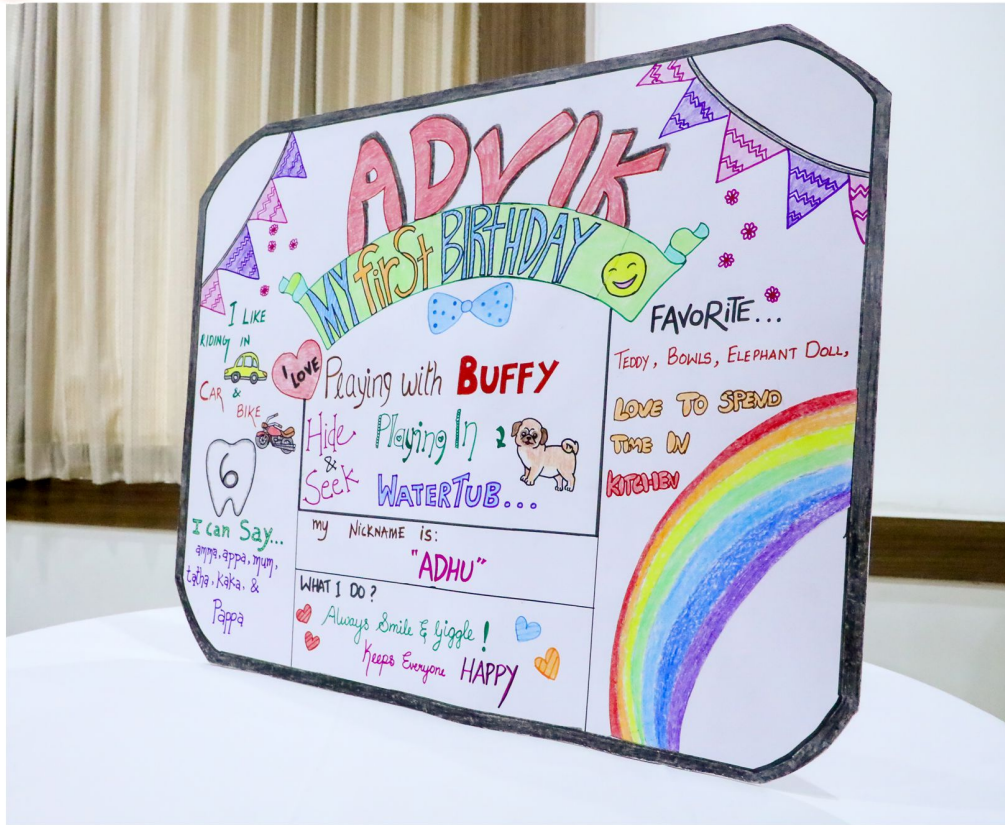 ADVIK
MY first BIRTHDAY
I LIKE
RIDING IN
CAR &
BIKE
6
I can Say...
amma, appa, mum,
tatha, kaka, &
Pappa
I LOVE
Playing with BUFFY
Hide
&
Seek
Playing In
WATERTUB...
my NICKNAME is:
"ADHU"
WHAT I DO?
Always Smile & Giggle!
Keeps Everyone HAPPY
FAVORiTE...
TEDDY, BOWLS, ELEPHANT DOLL,
LOVE TO SPEND
TIME IN
KITCHEN